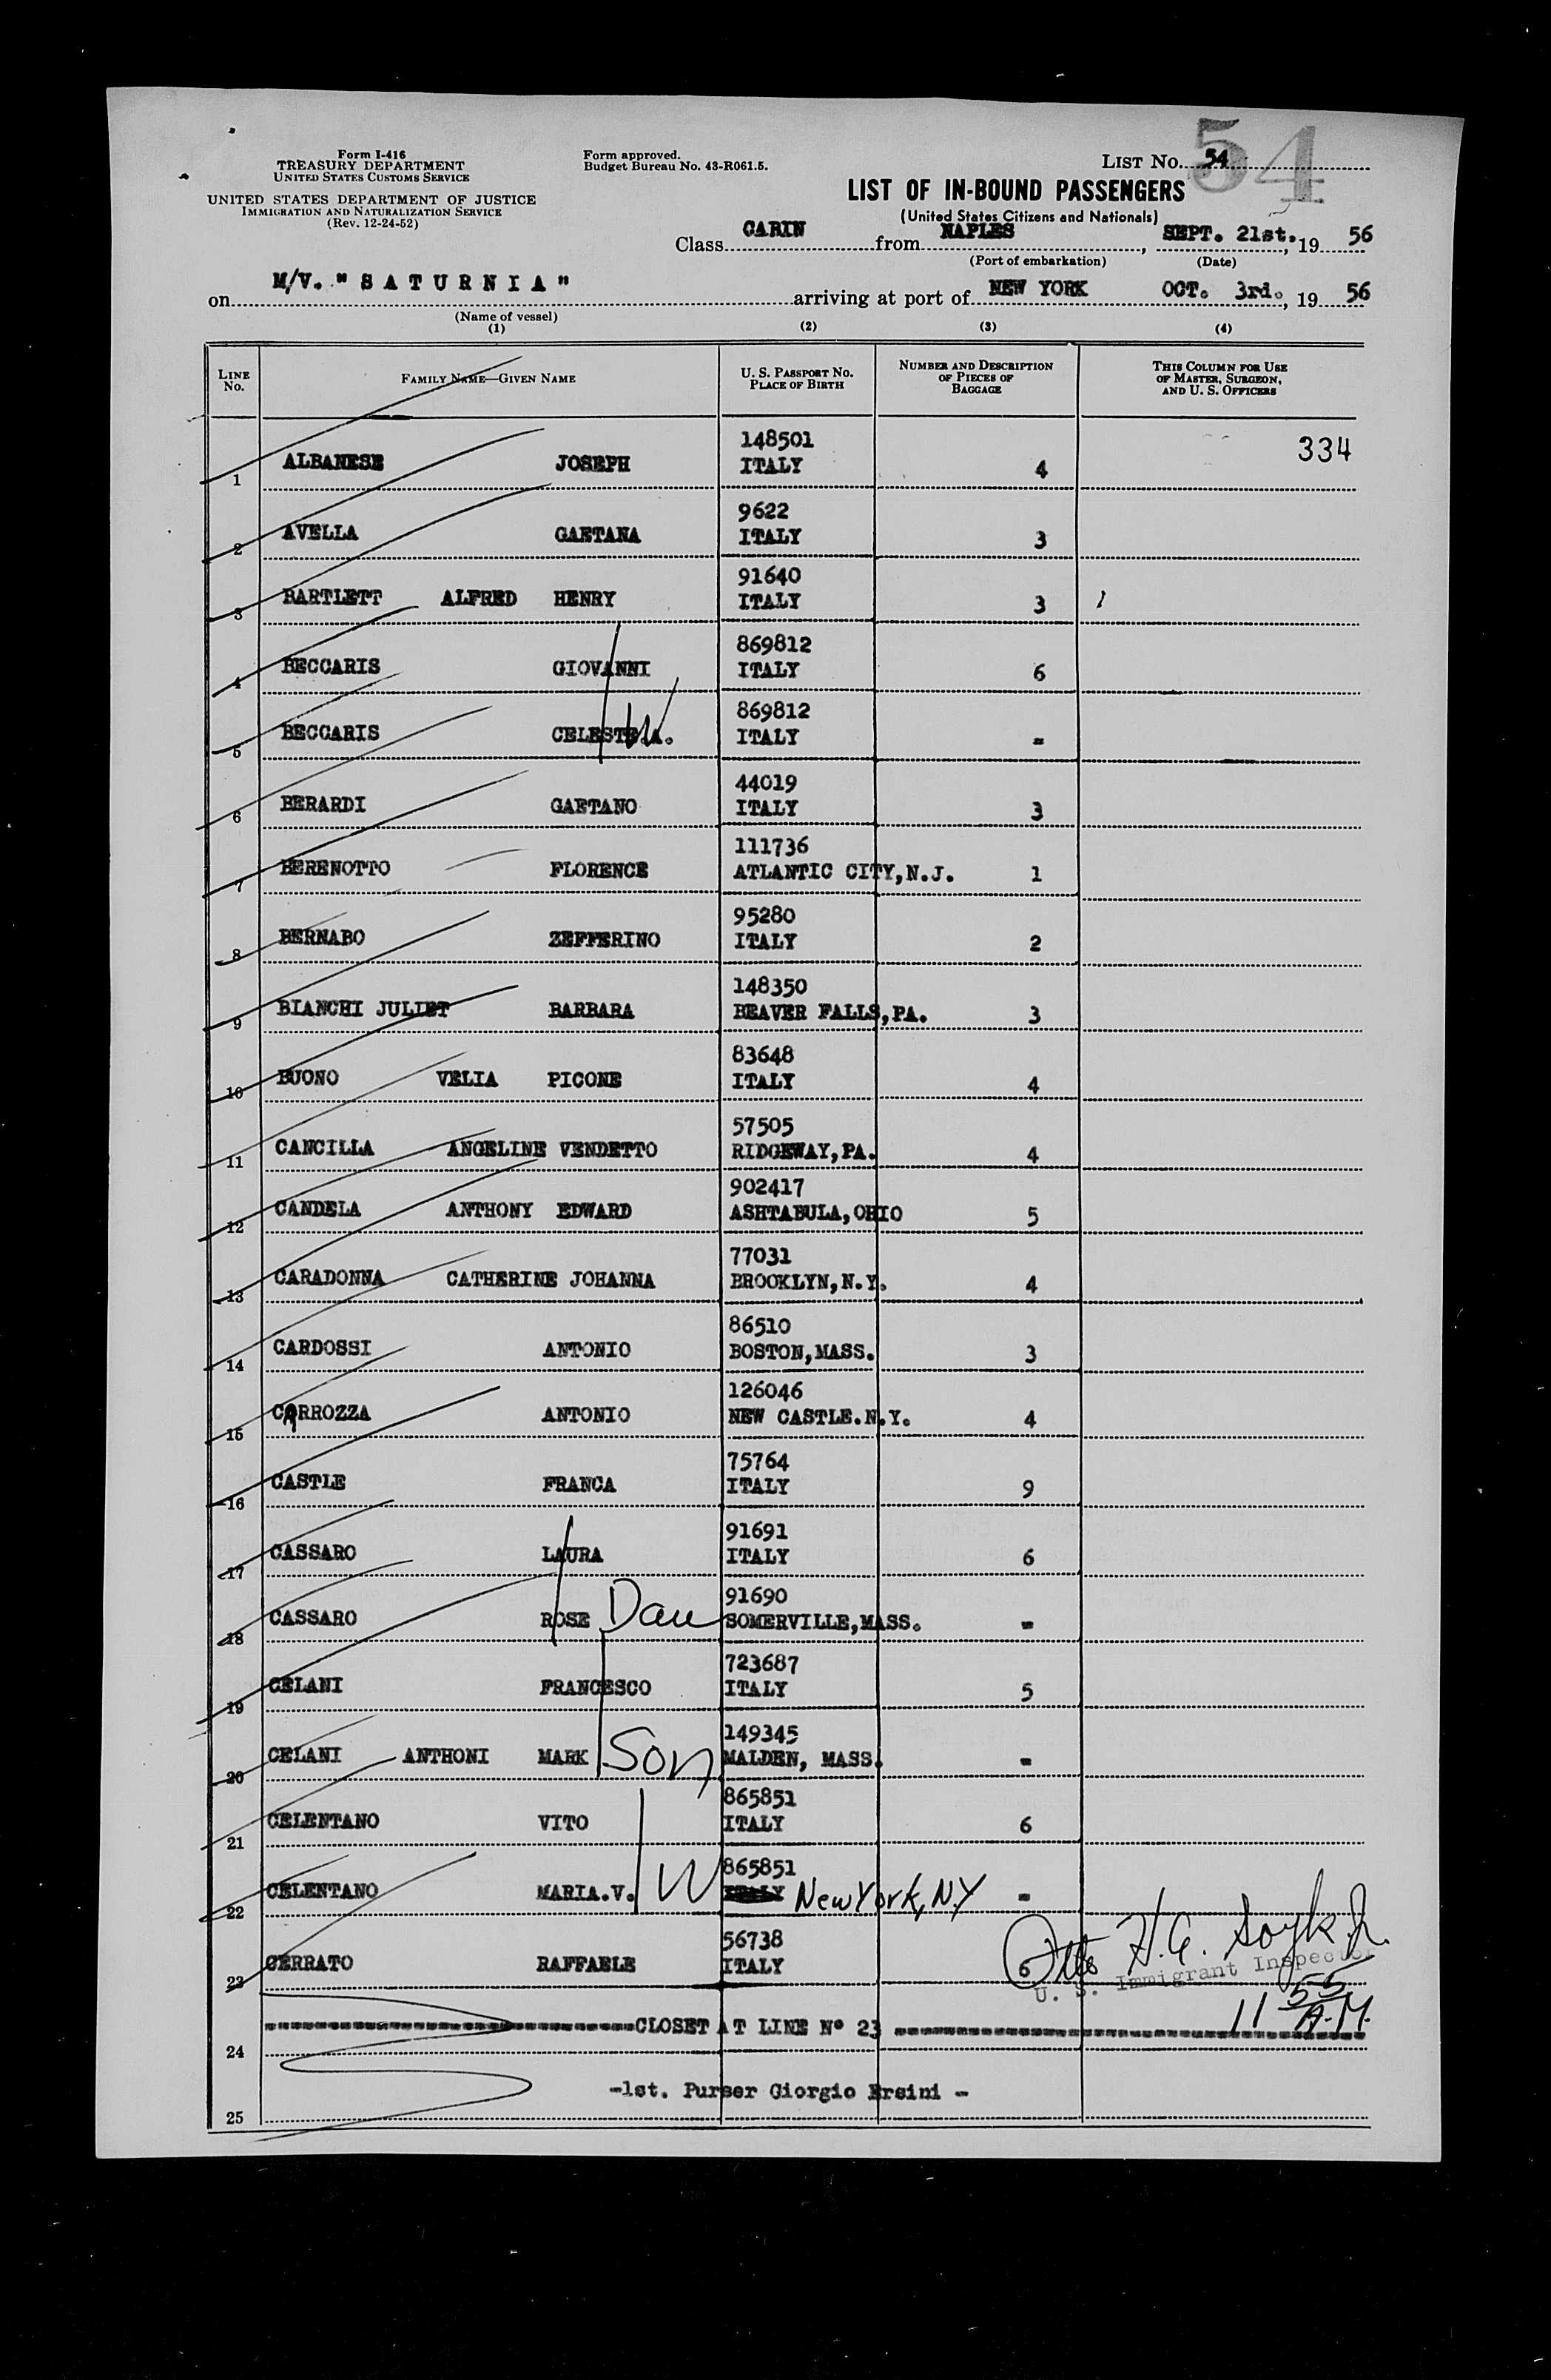 Form I-416
TREASURY DEPARTMENT
UNITED STATES CUSTOMS SERVICE
UNITED STATES DEPARTMENT OF JUSTICE
IMMIGRATION AND NATURALIZATION SERVICE
(Rev. 12-24-52)
Form approved.
Budget Bureau No. 43-R061.5.
LIST No. 54
54
LIST OF IN-BOUND PASSENGERS
(United States Citizens and Nationals)
Class CABIN from NAPLES, SEPT. 21st., 19 56
(Port of embarkation) (Date)
on M/V. "SATURNIA" arriving at port of NEW YORK OCT. 3rd., 19 56
(Name of vessel)
(1) (2) (3) (4)
LINE No. FAMILY NAME—GIVEN NAME U. S. PASSPORT No. PLACE OF BIRTH NUMBER AND DESCRIPTION OF PIECES OF BAGGAGE THIS COLUMN FOR USE OF MASTER, SURGEON, AND U. S. OFFICERS
148501 334
1 ALBANESE JOSEPH ITALY 4
9622
2 AVELLA GAETANA ITALY 3
91640
3 BARTLETT ALFRED HENRY ITALY 3
869812
4 BECCARIS GIOVANNI ITALY 6
869812
5 BECCARIS CELESTE.A. W ITALY -
44019
6 BERARDI GAETANO ITALY 3
111736
7 BERENOTTO FLORENCE ATLANTIC CITY,N.J. 1
95280
8 BERNABO ZEFFERINO ITALY 2
148350
9 BIANCHI JULIET BARBARA BEAVER FALLS,PA. 3
83648
10 BUONO VELIA PICONE ITALY 4
57505
11 CANCILLA ANGELINE VENDETTO RIDGEWAY,PA. 4
902417
12 CANDELA ANTHONY EDWARD ASHTABULA,OHIO 5
77031
13 CARADONNA CATHERINE JOHANNA BROOKLYN,N.Y. 4
86510
14 CARDOSSI ANTONIO BOSTON,MASS. 3
126046
15 CARROZZA ANTONIO NEW CASTLE.N.Y. 4
75764
16 CASTLE FRANCA ITALY 9
91691
17 CASSARO LAURA ITALY 6
91690
18 CASSARO ROSE Dau SOMERVILLE,MASS. -
723687
19 CELANI FRANCESCO ITALY 5
149345
20 CELANI ANTHONI MARK Son MALDEN, MASS. -
865851
21 CELENTANO VITO ITALY 6
865851
22 CELENTANO MARIA.V. W ITALY New York, N.Y -
56738
23 CERRATO RAFFAELE ITALY 6
U. S. Immigrant Inspector
CLOSET AT LINE Nº 23 11 55 A.M.
24
-1st. Purser Giorgio Ersini -
25